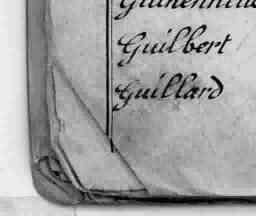 Guilbert
Guillard